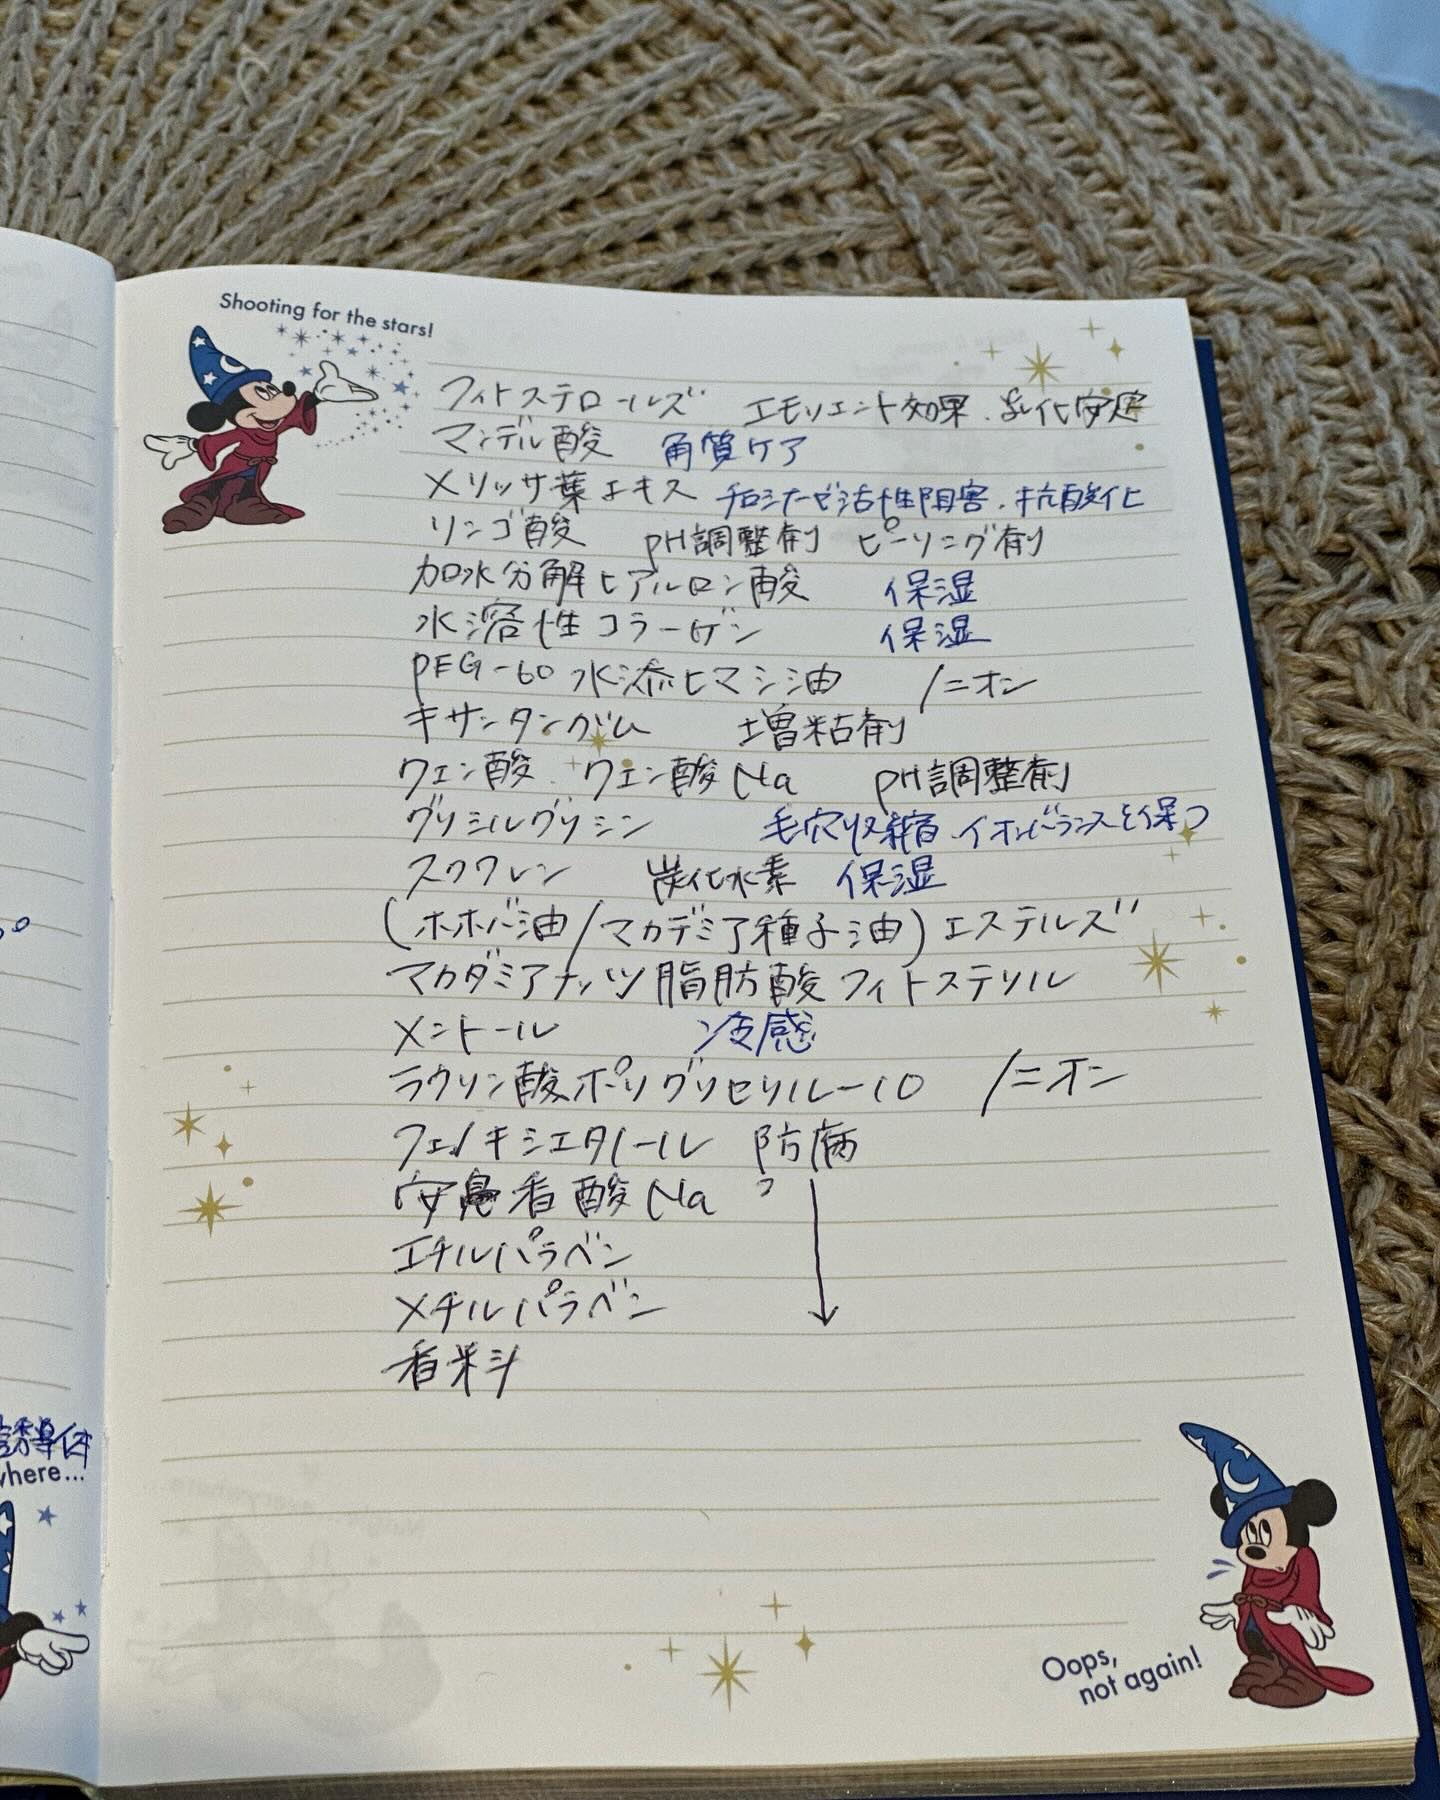 Shooting for the stars!
フィトステロールズ エモリエント効果、乳化安定
マンデル酸 角質ケア
メリッサ葉エキス チロシナーゼ活性阻害、抗酸化
リンゴ酸 pH調整剤 ピーリング剤
加水分解ヒアルロン酸 保湿
水溶性コラーゲン 保湿
PEG-60水添ヒマシ油 ノニオン
キサンタンガム 増粘剤
クエン酸、クエン酸Na pH調整剤
グリシルグリシン 毛穴収縮、イオンバランスを保つ
スクワレン 炭化水素 保湿
(ホホバ油/マカデミア種子油)エステルズ
マカダミアナッツ脂肪酸フィトステリル
メントール 冷感
ラウリン酸ポリグリセリル-10 ノニオン
フェノキシエタノール 防腐
安息香酸Na
エチルパラベン
メチルパラベン
香料
誘導体
where...
Oops,
not again!